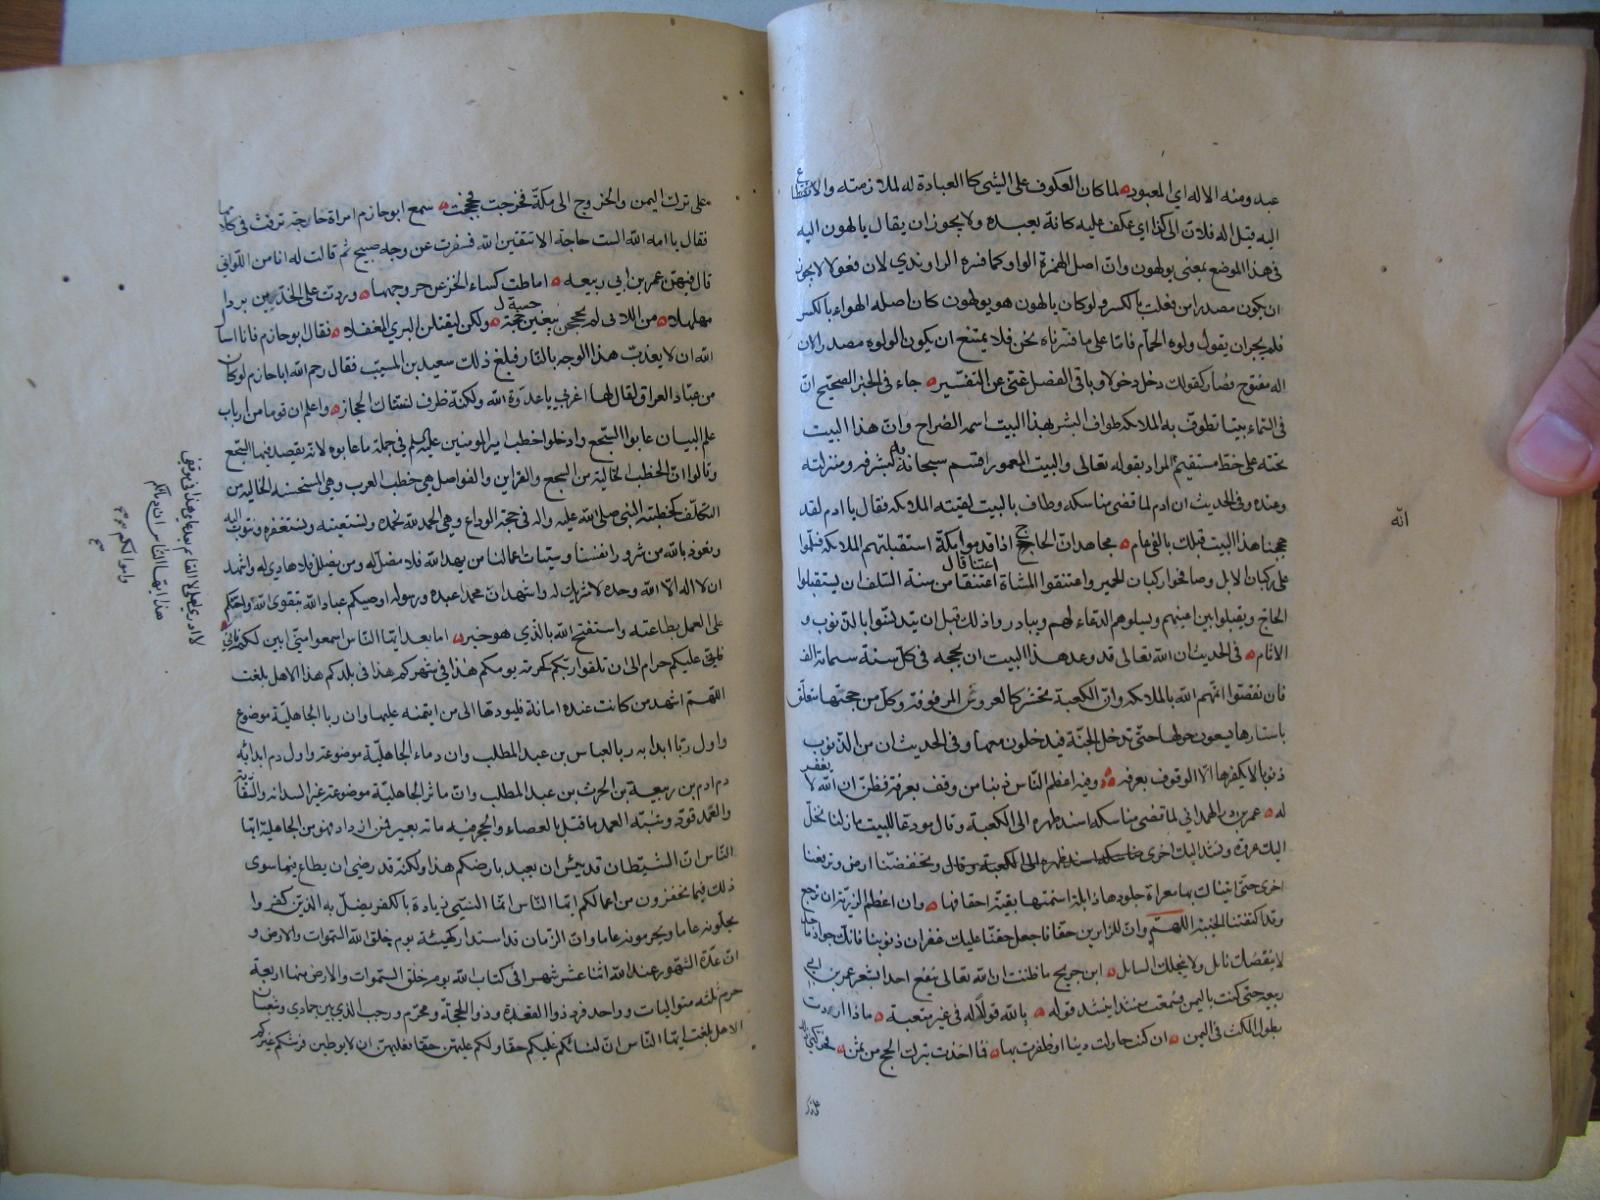 عبد ومنه الاله اي المعبود لما كان العكوف على الشيء كالعبادة له لملازمته والانقطاع
اليه قيل اله فلان الى كذا اي عكف عليه كانه يعبده ولا يجوز ان يقال يالهون اليه
في هذا الموضع بمعنى يولهون وان اصل الهمزة الواو كما فسره الراوندي لان فعولا لا يجوز
ان يكون مصدرا من فعلت بالكسر ولو كان يالهون هو يولهون كان اصله الهواء بالكسر
فلم يجز ان يقول ولوه الحمام فاما على ما فسرناه نحن فلا يمتنع ان يكون الولوه مصدرا لان
اله مفتوح فصار كقولك دخل دخولا وباقي الفصل غني عن التفسير جاء في الخبر الصحيح ان
في السماء بيتا تطوف به الملائكه طواف البشر بهذا البيت اسمه الضراح وان هذا البيت
تحته على خط مستقيم المراد بقوله تعالى والبيت المعمور اقسم سبحانه به لشرفه ومنزلته
وعنده وفي الحديث ان ادم لما قضى مناسكه وطاف بالبيت لقيته الملائكه فقال يا ادم لقد
حججنا هذا البيت قبلك بالفي عام مجاهد ان الحاج اذا قدموا مكة استقبلتهم الملائكه فسلموا
على ركبان الابل وصافحوا ركبان الحمير واعتنقوا المشاة اعتناقا قال من سنة السلف ان يستقبلوا
الحاج ويقبلوا بين اعينهم ويسلوهم الدعاء لهم ويبادروا ذلك قبل ان يتدنسوا بالذنوب و
الاثام في الحديث ان الله تعالى قد وعد هذا البيت ان يحجه في كل سنة ستمائة الف
فان نقصوا اتمهم الله بالملائكه وان الكعبة تحشر كالعروس المزفوفة وكل من حجها متعلق
باستارها يسعون حولها حتى تدخل الجنة فيدخلون معها وفي الحديث ان من الذنوب
ذنوبا لا يكفرها الا الوقوف بعرفه وفيه اعظم الناس ذنبا من وقف بعرفة فظن ان الله لا يغفر
له عمر بن ذر الهمداني لما قضى مناسكه اسند ظهره الى الكعبة وقال مودعا للبيت ما زلنا نحل
اليك عروة ونشد اليك اخرى مناسكه اسند ظهره الى الكعبة وقال وتخفضنا ارض وترفعنا
اخرى حتى اتيناك
وقد اكتنفتنا الخيبة اللهم وان للزائرين حقا فاجعل حقنا عليك غفران ذنوبنا فانك جواد ماجد
لا ينقصك نائل ولا يبخلك السائل ابن جريج ما ظننت ان الله تعالى ينفع احدا بشعر عمر بن ابي
ربيعه حتى كنت باليمن فسمعت منشدا ينشد قوله بالله قولا له في غير معتبة ماذا اردت
بطول المكث في اليمن ان كنت حاولت دنيا او ظفرت بها فما اخذت بترك الحج من ثمن
الله
على ترك اليمن والخروج الى مكة فخرجت فحججت سمع ابو حازم امراة حاجة ترفث في كلامها
فقال يا امه الله الست حاجة الا تتقين الله فسفرت عن وجه صبيح ثم قالت له انا من اللواتي
قال فيهن عمر بن ابي ربيعه اماطت كساء الخز عن حر وجهها وردت على الخدين بردا
مهلهلا من اللائي لم يحججن يبغين حسبة ولكن ليقتلن البري المغفلا فقال ابو حازم فانا اسال
الله ان لا يعذب هذا الوجه بالنار فبلغ ذلك سعيد بن المسيب فقال رحم الله ابا حازم لو كان
من عباد العراق لقال لها اغربي يا عدوة الله ولكنه ظرف نساك الحجاز واعلم ان قوما من ارباب
علم البيان عابوا السجع وادخلوا خطب امير المومنين عليه السلم في جملة ما عابوه لانه يقصد فيها السجع
وقالوا ان الخطب الخالية من السجع والقراين والفواصل هي خطب العرب وهي المستحسنه الخاليه من
التكلف كخطبة النبي صلى الله عليه واله في حجة الوداع وهي الحمد لله نحمده ونستعينه ونستغفره ونتوب اليه
ونعوذ بالله من شرور انفسنا وسيئات اعمالنا من يهد الله فلا مضل له ومن يضلل فلا هادي له واشهد
ان لا اله الا الله وحده لا شريك له واشهد ان محمدا عبده ورسوله اوصيكم عباد الله بتقوى الله واحثكم
على العمل بطاعته واستفتح الله بالذي هو خير اما بعد ايها الناس اسمعوا مني ابين لكم
عليكم حرام الى ان تلقوا ربكم كحرمة يومكم هذا في شهركم هذا في بلدكم هذا الا هل بلغت
اللهم اشهد من كانت عنده امانة فليودها الى من ايتمنه عليها وان ربا الجاهلية موضوع
واول ربا ابدا به ربا العباس بن عبد المطلب وان دماء الجاهلية موضوعة واول دم ابدا به
دم ادم بن ربيعة بن الحرث بن عبد المطلب وان ماثر الجاهلية موضوعة غير السدانه والسقاية
والعمد قود وشبه العمد ما قتل بالعصا والحجر فيه مائه بعير فمن ازداد فهو من الجاهلية ايها
الناس ان الشيطان قد يئس ان يعبد بارضكم هذا ولكنه قد رضي ان يطاع فيما سوى
ذلك فيما تحقرون من اعمالكم ايها الناس انما النسيء زيادة بالكفر يضل به الذين كفروا
يحلونه عاما ويحرمونه عاما وان الزمان قد استدار كهيئته يوم خلق الله السموات والارض و
ان عدة الشهور عند الله اثنا عشر شهرا في كتاب الله يوم خلق السموات والارض منها اربعة
حرم ثلثه متواليات وواحد فرد ذوالقعدة وذوالحجة ومحرم ورجب الذي بين جمادى وشعبان
الا هل بلغت ايها الناس ان لنسائكم عليكم حقا ولكم عليهن حقا فعليهن ان لا يوطين فرشكم غيركم